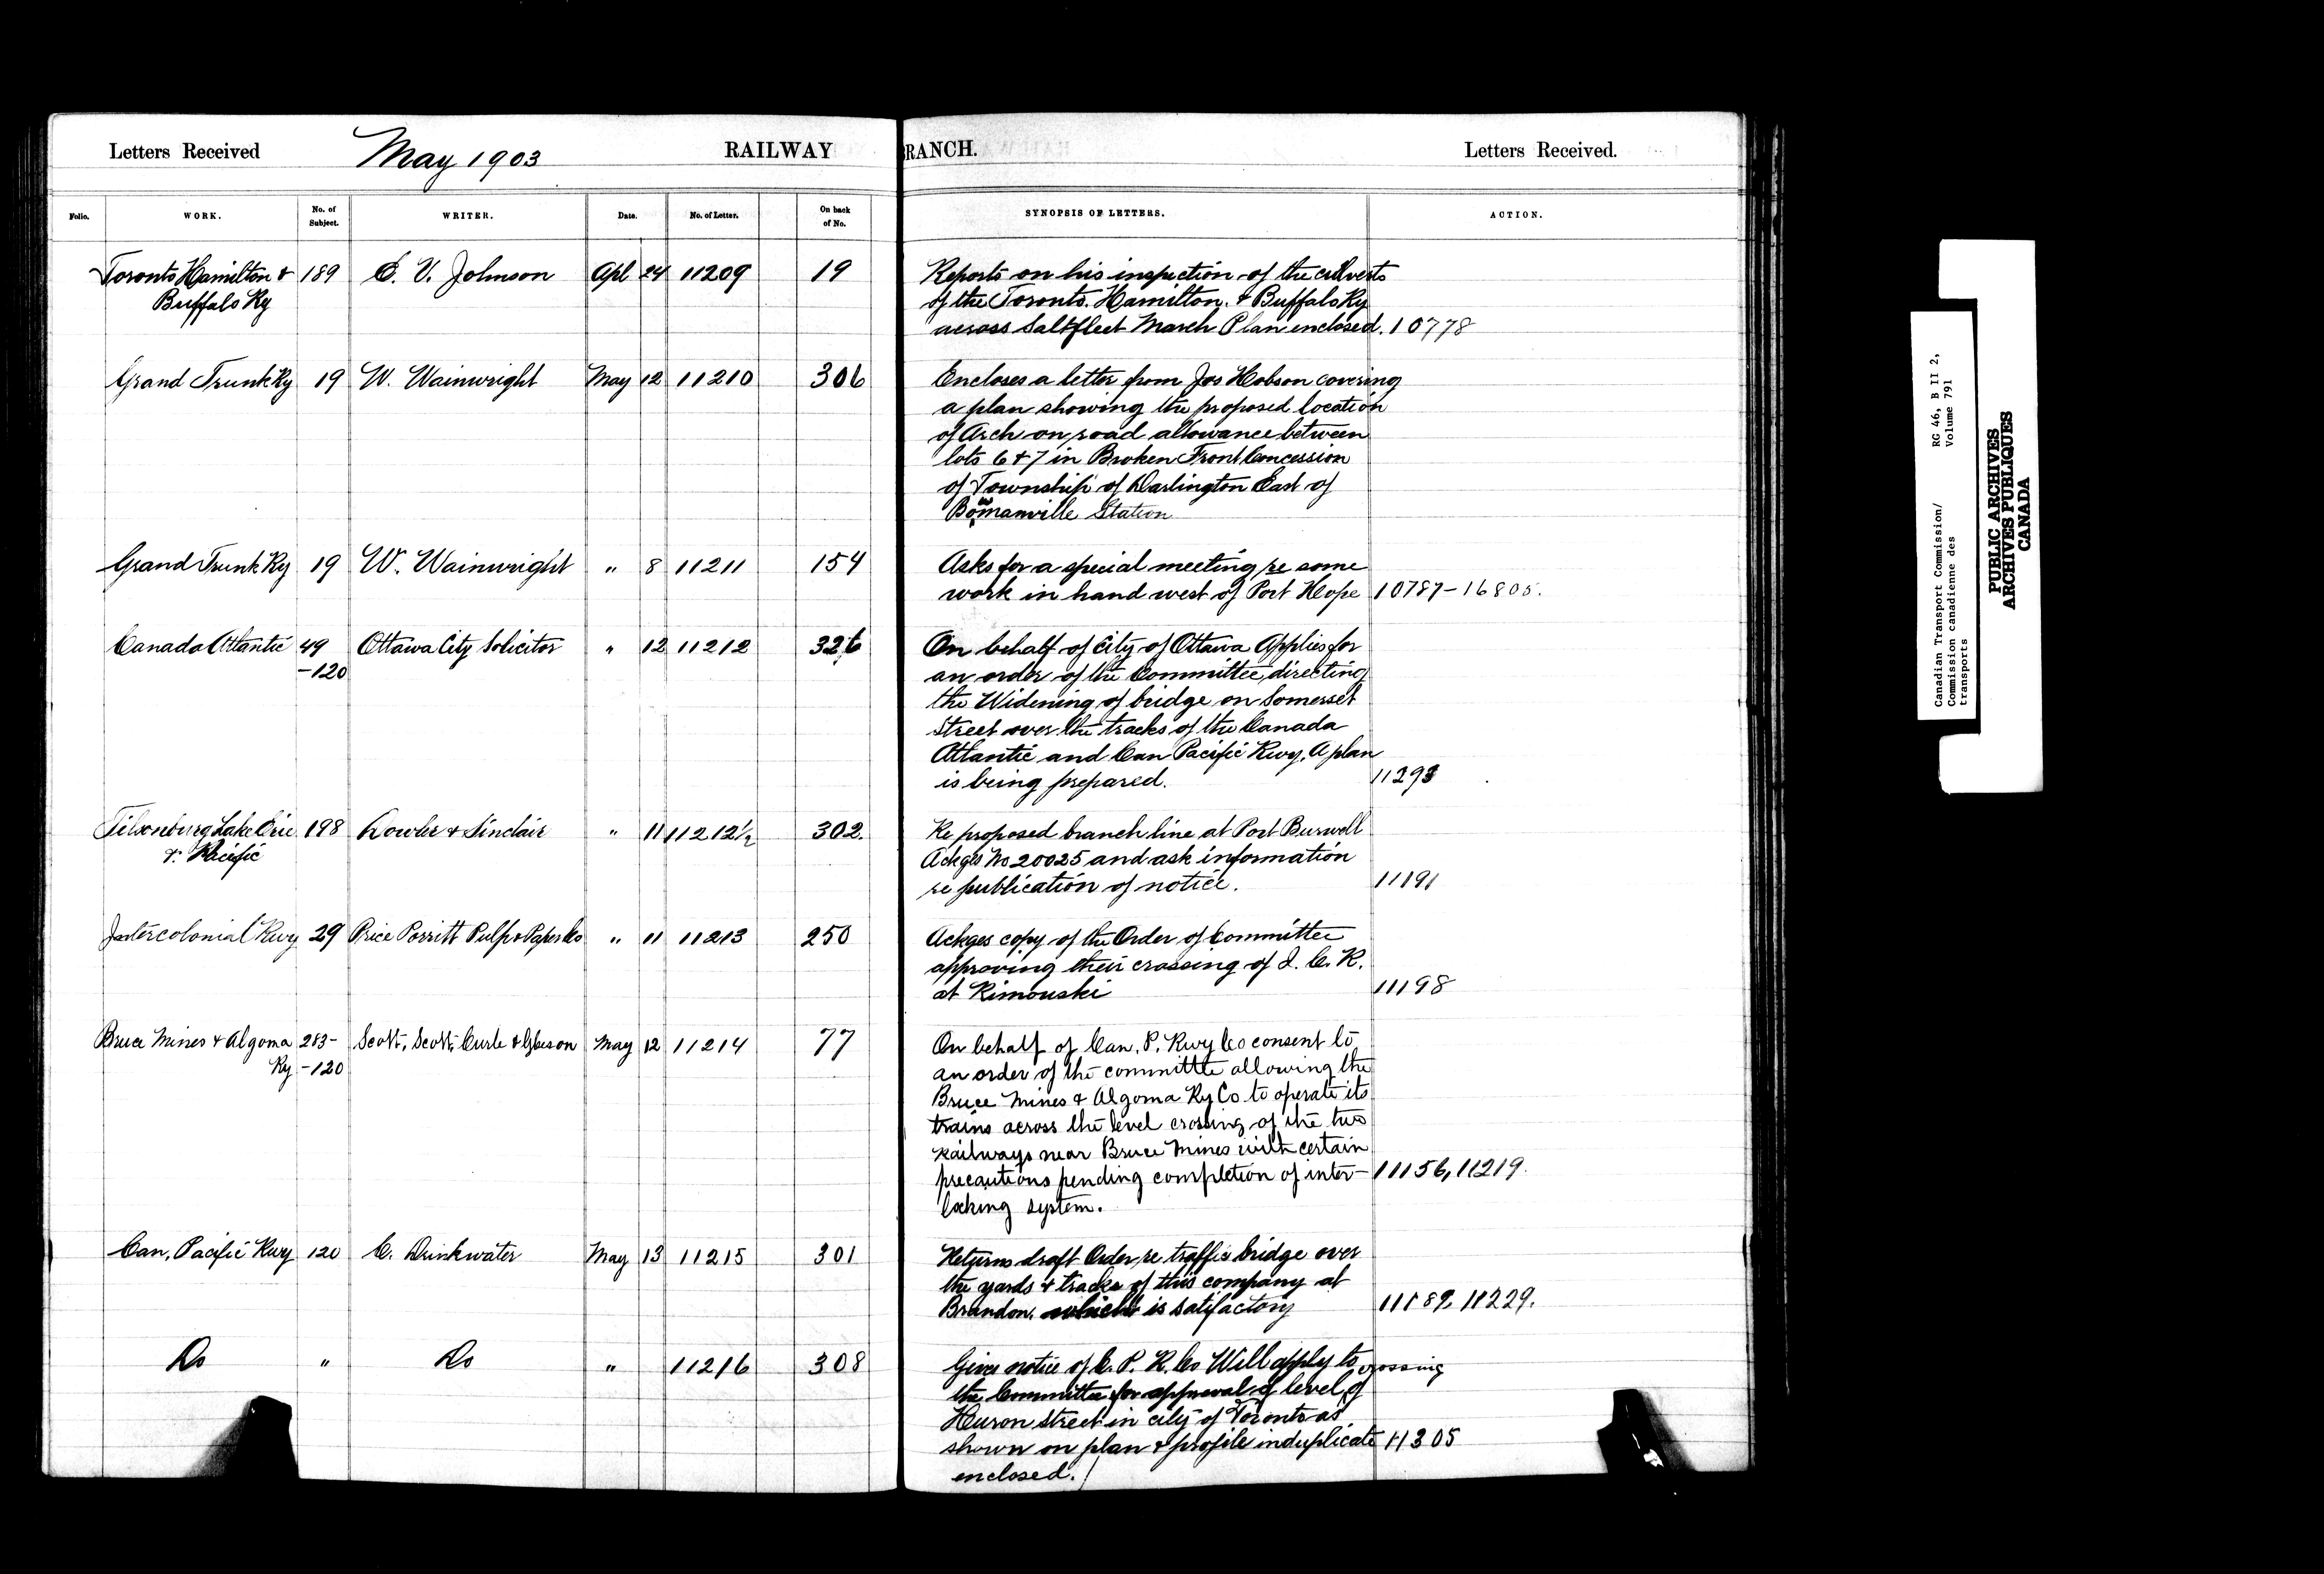 Letters Received May 1903 RAILWAY BRANCH. Letters Received.
Folio. WORK. No. of Subject. WRITER. Date. No. of Letter. On back of No. SYNOPSIS OF LETTERS. ACTION.
Toronto Hamilton & 189 E. V. Johnson Apl 24 11209 19 Reports on his inspection of the culverts
Buffalo Ry of the Toronto. Hamilton. & Buffalo Ry
across Saltfleet Marsh Plan enclosed. 10778
Grand Trunk Ry 19 W. Wainwright May 12 11210 306 Encloses a letter from Jos Hobson covering
a plan showing the proposed location
of Arch on road allowance between
lots 6 & 7 in Broken Front Concession
of Township of Darlington East of
Bowmanville Station
Grand Trunk Ry 19 W. Wainwright " 8 11211 154 Asks for a special meeting re some
work in hand west of Port Hope 10787-16805.
Canada Atlantic 49 Ottawa City Solicitor " 12 11212 326 On behalf of City of Ottawa Applies for
-120 an order of the Committee, directing
the Widening of bridge on Somerset
Street over the tracks of the Canada
Atlantic and Can Pacific Rwy. A plan
is being prepared. 11293
Tilsonburg Lake Erie 198 Dowler & Sinclair " 11 11212½ 302. Re proposed branch line at Port Burwell
& Pacific Ackges No 20025 and ask information
re publication of notice. 11191
Intercolonial Rwy 29 Price Porritt Pulp & Paper Co " 11 11213 250 Ackges copy of the Order of Committee
approving their crossing of I. C. R.
at Rimouski 11198
Bruce Mines & Algoma 283- Scott, Scott, Curle & Gleeson May 12 11214 77 On behalf of Can. P. Rwy Co consent to
Ry -120 an order of the committee allowing the
Bruce Mines & Algoma Ry Co to operate its
trains across the level crossing of the two
railways near Bruce Mines with certain
precautions pending completion of inter- 11156, 11219.
locking system.
Can. Pacific Rwy 120 C. Drinkwater May 13 11215 301 Returns draft Order, re traffic bridge over
the yards & tracks of this company at
Brandon, which is satisfactory 11189, 11229.
Do " Do " 11216 308 Gives notice of C. P. R. Co Will apply to
the Committee for approval of level crossing of
Huron street in city of Toronto as
shown on plan & profile in duplicate 11305
enclosed.
Canadian Transport Commission/ RG 46, B II 2,
Commission canadienne des Volume 791
transports
PUBLIC ARCHIVES
ARCHIVES PUBLIQUES
CANADA